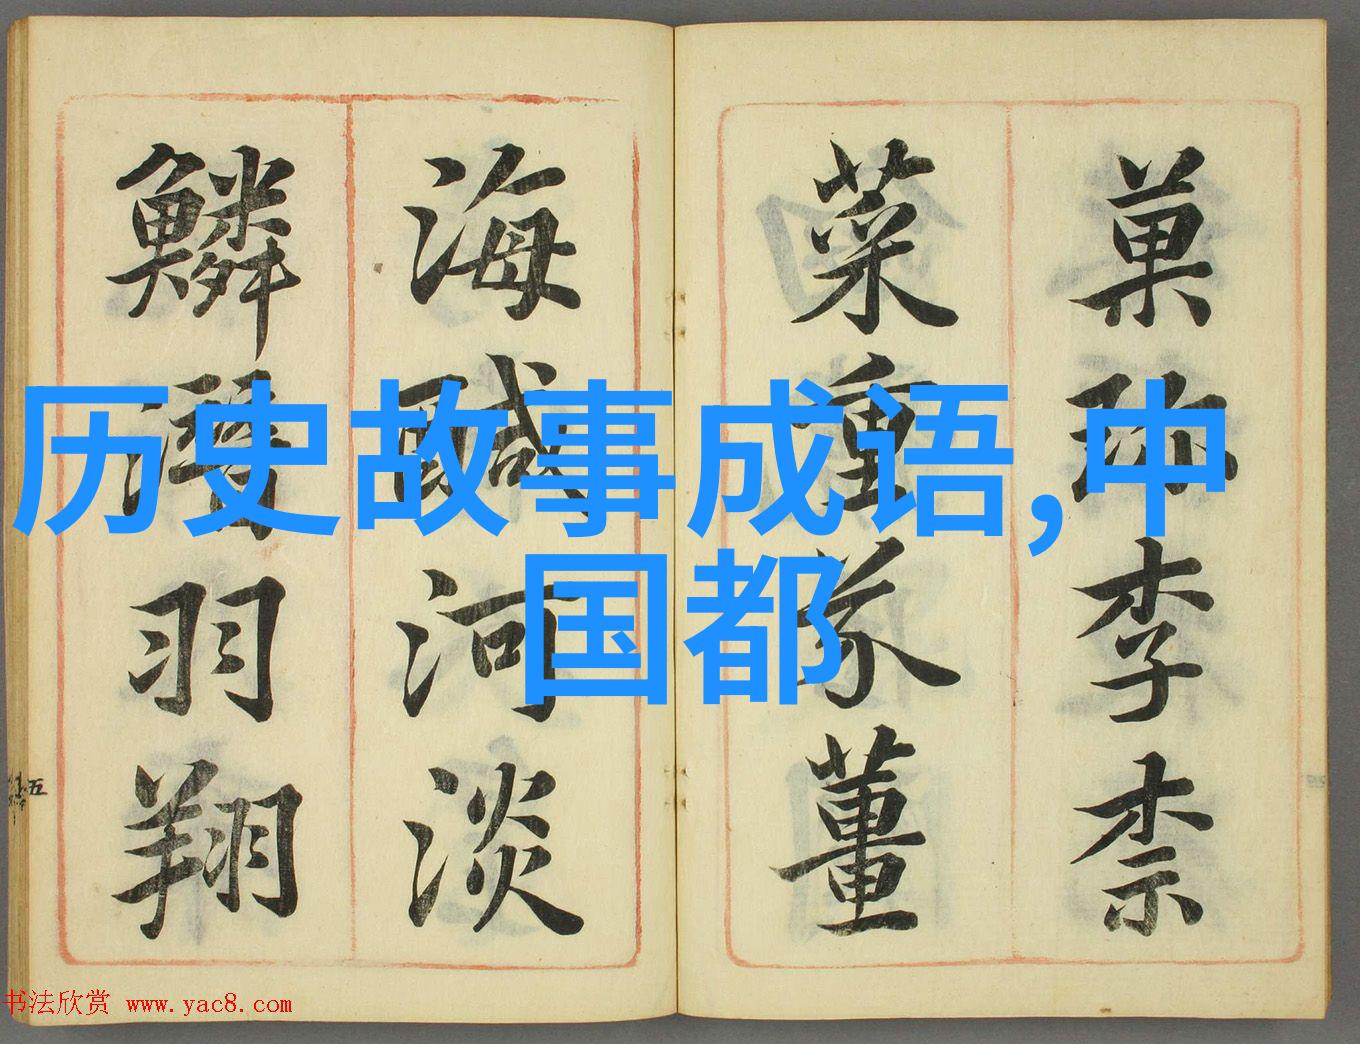 历史故事成语,中
国都
菓珎李柰
菜重芥薑
海鹹河淡
鱗潛羽翔
五
书法欣赏 www.yac8.com